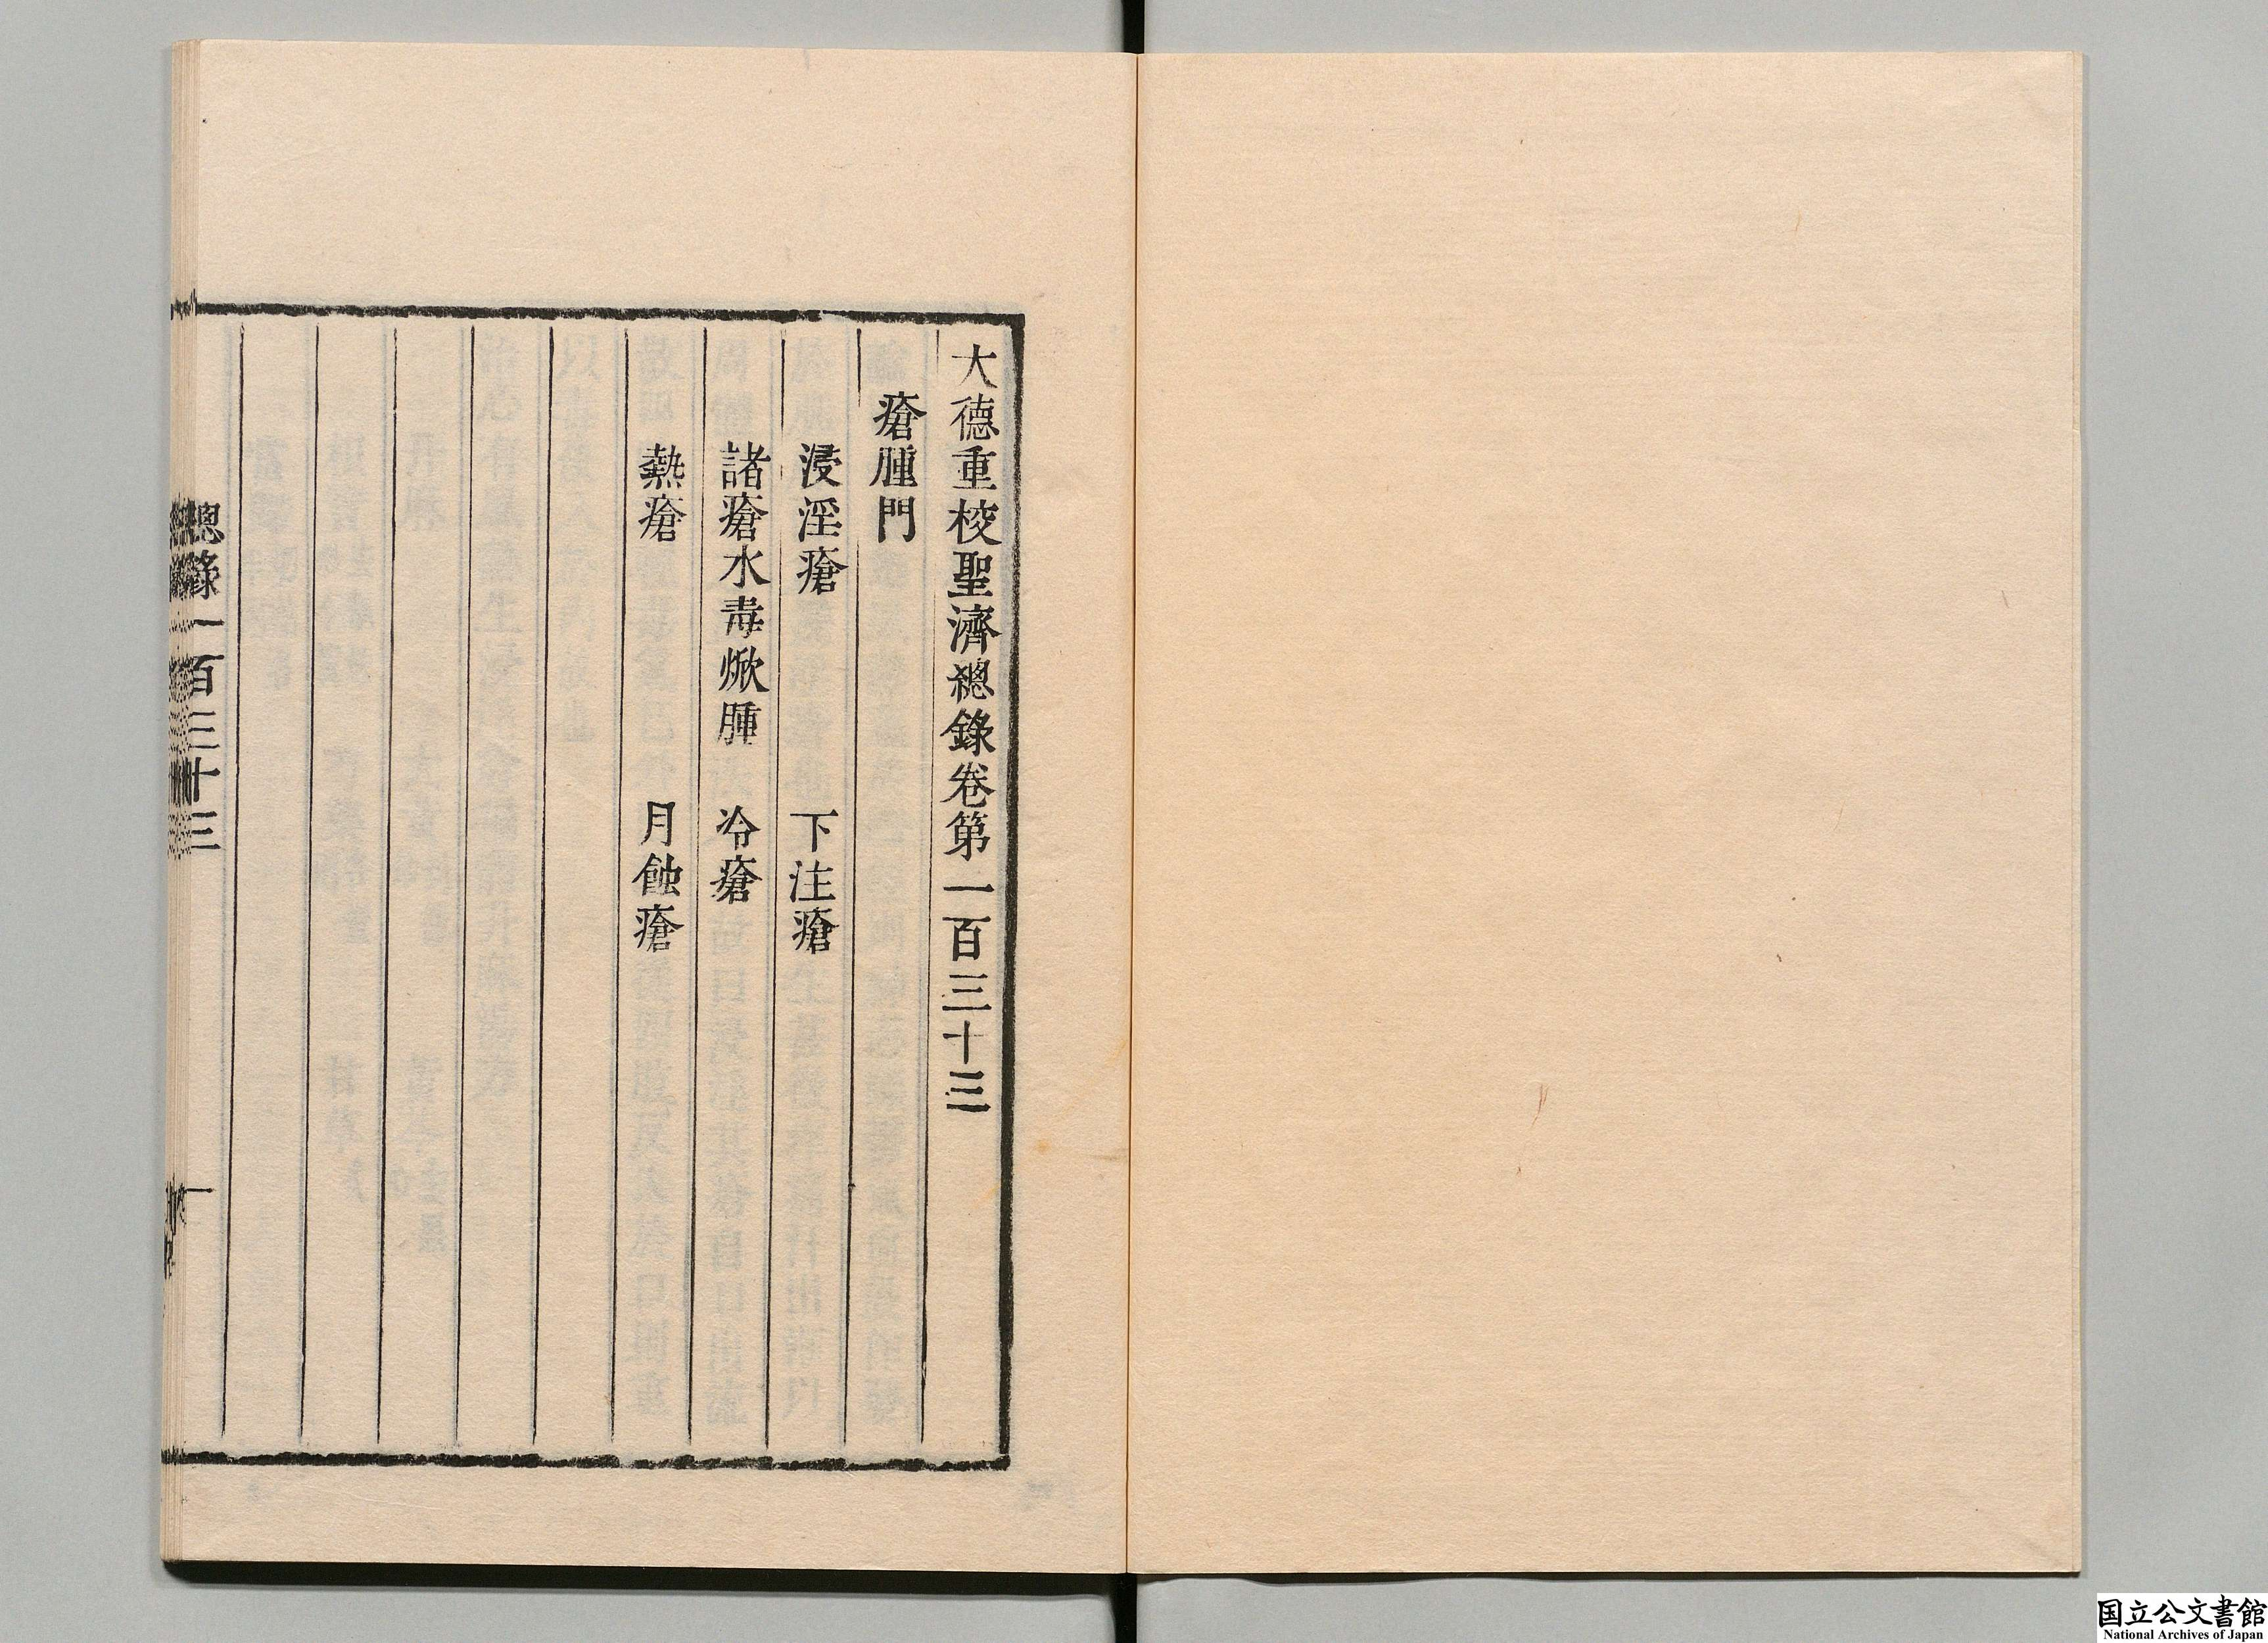 大德重校聖濟總錄卷第一百三十三
瘡腫門
浸淫瘡　下注瘡
諸瘡水毒焮腫　冷瘡
熱瘡　月蝕瘡
總錄一百三十三　一
国立公文書館
National Archives of Japan